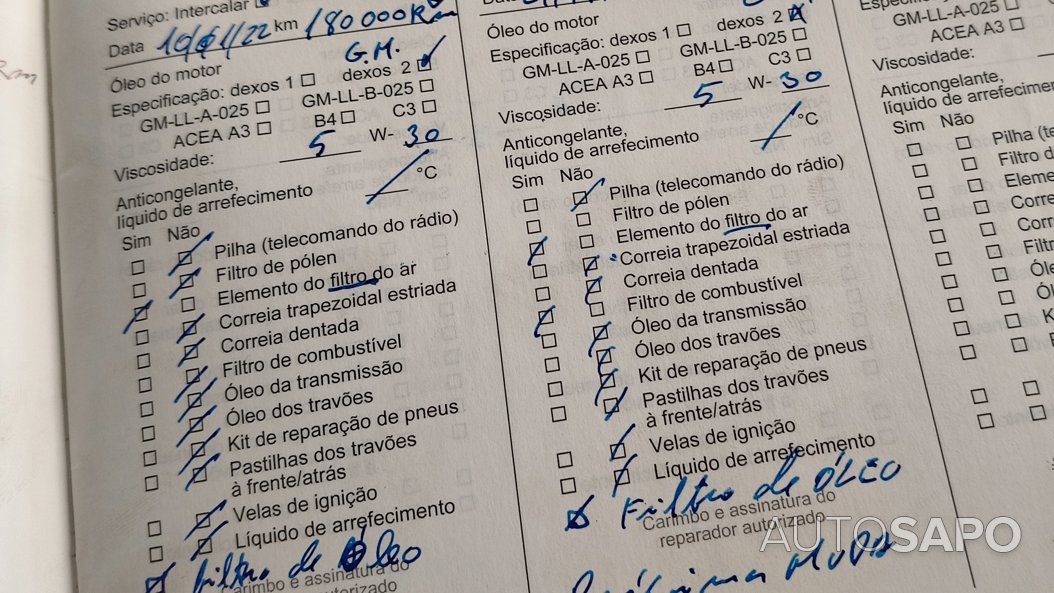 Serviço: Intercalar
Data 10/01/22 km 180 000 Km
G.M.
Óleo do motor
Especificação: dexos 1 dexos 2
GM-LL-A-025 GM-LL-B-025
ACEA A3 B4 C3
Viscosidade: 5 W- 30
Anticongelante,
líquido de arrefecimento °C
Sim Não
Pilha (telecomando do rádio)
Filtro de pólen
Elemento do filtro do ar
Correia trapezoidal estriada
Correia dentada
Filtro de combustível
Óleo da transmissão
Óleo dos travões
Kit de reparação de pneus
Pastilhas dos travões
à frente/atrás
Velas de ignição
Líquido de arrefecimento
Filtro de Óleo
Carimbo e assinatura do
autorizado
Data
Óleo do motor
Especificação: dexos 1 dexos 2
GM-LL-A-025 GM-LL-B-025
ACEA A3 B4 C3
Viscosidade: 5 W- 30
Anticongelante,
líquido de arrefecimento °C
Sim Não
Pilha (telecomando do rádio)
Filtro de pólen
Elemento do filtro do ar
Correia trapezoidal estriada
Correia dentada
Filtro de combustível
Óleo da transmissão
Óleo dos travões
Kit de reparação de pneus
Pastilhas dos travões
à frente/atrás
Velas de ignição
Líquido de arrefecimento
Filtro de ÓLEO
Carimbo e assinatura do
reparador autorizado
Próxima Muda
Especificação:
GM-LL-A-025
ACEA A3
Viscosidade:
Anticongelante,
líquido de arrefecimen
Sim Não
Pilha (te
Filtro d
Eleme
Corre
Corr
Filtr
Óle
Ól
K
AUTOSAPO